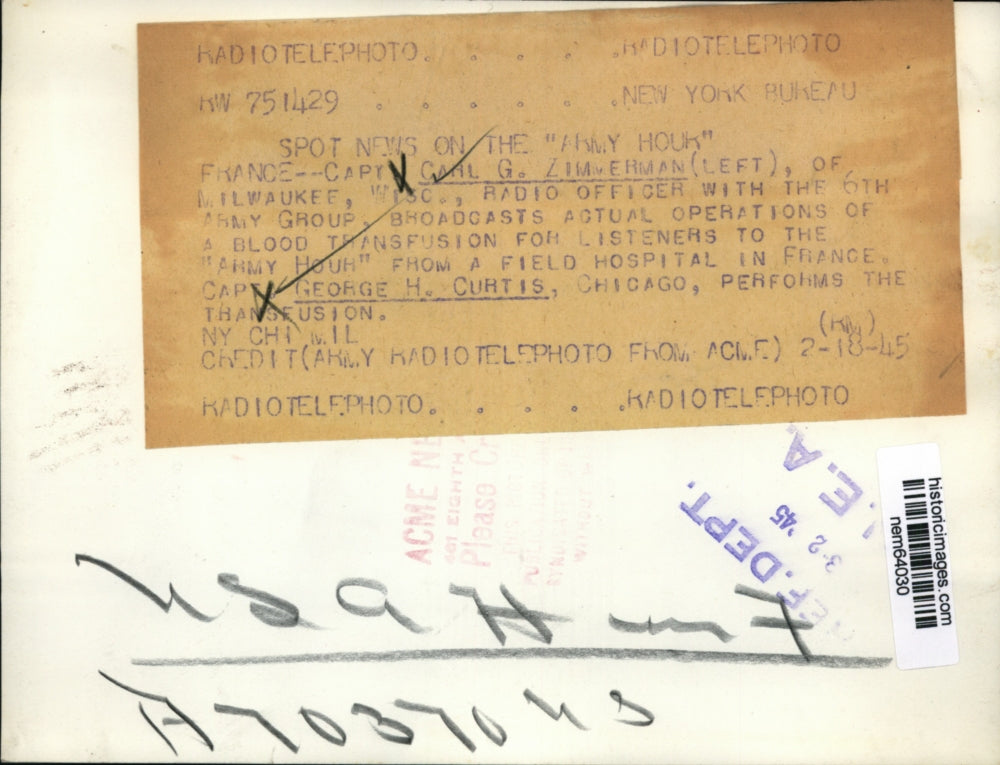 RADIOTELEPHOTO. . . . .RADIOTELEPHOTO
RW 751429 . . . . . .NEW YORK BUREAU
SPOT NEWS ON THE "ARMY HOUR"
FRANCE--CAPT CARL G. ZIMMERMAN(LEFT), OF
MILWAUKEE, WISC., RADIO OFFICER WITH THE 6TH
ARMY GROUP, BROADCASTS ACTUAL OPERATIONS OF
A BLOOD TRANSFUSION FOR LISTENERS TO THE
"ARMY HOUR" FROM A FIELD HOSPITAL IN FRANCE.
CAPT GEORGE H. CURTIS, CHICAGO, PERFORMS THE
TRANSFUSION.
NY CHI MIL (RM)
CREDIT(ARMY RADIOTELEPHOTO FROM ACME) 2-18-45
RADIOTELEPHOTO. . . . .RADIOTELEPHOTO
ACME NE
EIGHTH A
Please
REF. DEPT.
3-2 '45
E. A.
historicimages.com
nem64030
USA